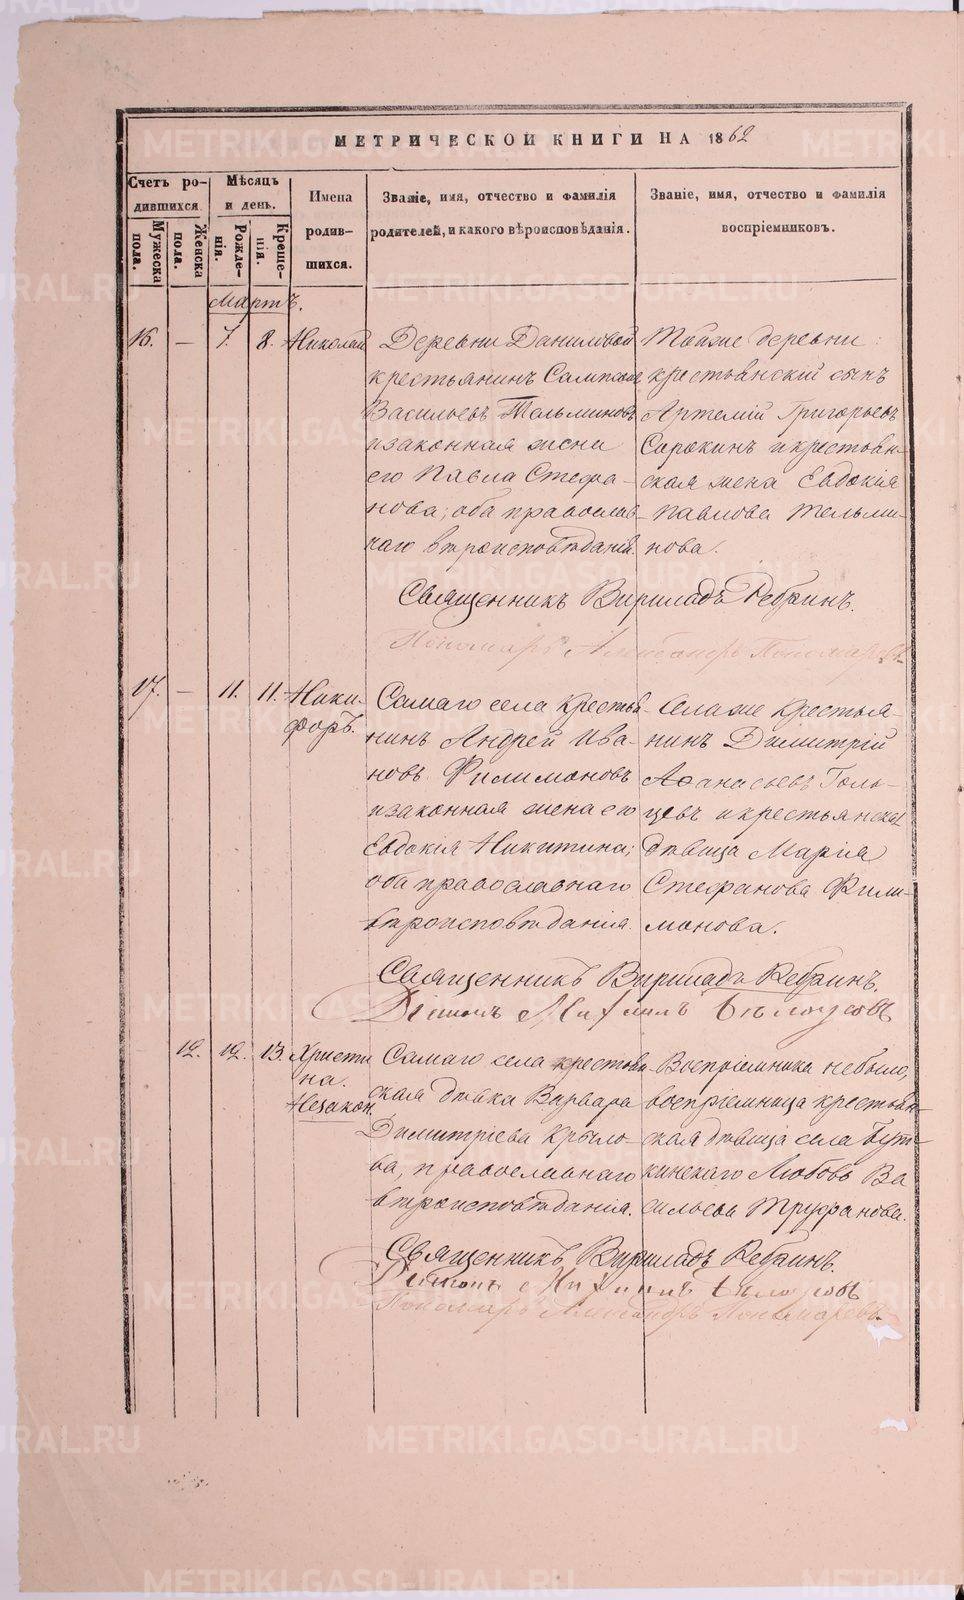 МЕТРИЧЕСКОЙ КНИГИ НА 1862
Счетъ родившихся.
Мѣсяцъ и день.
Имена родившихся.
Званіе, имя, отчество и фамилія родителей, и какого вѣроисповѣданія.
Званіе, имя, отчество и фамилія воспріемниковъ.
Мужеска пола.
Женска пола.
Рожденія.
Крещенія.
Мартъ.
16. — 7. 8. Николай
Деревни Даниловой
крестьянинъ
Васильевъ Тельминовъ
и законная жена
его Павла Стефа-
нова; оба православ-
наго вѣроисповѣданія.
Тойже деревни
крестьянскій сынъ
Артемій Григорьевъ
Сорокинъ и крестьян-
ская жена Евдокія
Павлова Тельми-
нова.
Священникъ Вириладъ Ребринъ.
Пономарь Александръ Пономаревъ
17. — 11. 11. Ники-
форъ.
Самаго села крестья-
нинъ Андрей Ива-
новъ Филимоновъ
и законная жена его
Евдокія Никитина;
оба православнаго
вѣроисповѣданія.
Села же крестья-
нинъ Димитрій
Аѳанасьевъ Голь-
цевъ и крестьянская
дѣвица Марія
Стефанова Фили-
монова.
Священникъ Вириладъ Ребринъ.
Діаконъ Михаилъ Бѣлоусовъ
12. 12. 13. Христи
на.
Незакон.
Самаго села крестьян-
ская дѣвка Варвара
Димитріева Крыло-
ва, православнаго
вѣроисповѣданія.
Воспріемника небыло,
воспріемница крестьян-
ская дѣвица села Бут-
кинскаго Любовь Ва
сильева Труфанова.
Священникъ Вириладъ Ребринъ.
Діаконъ Михаилъ Бѣлоусовъ
Пономарь Александръ Пономаревъ.
METRIKI.GASO-URAL.RU